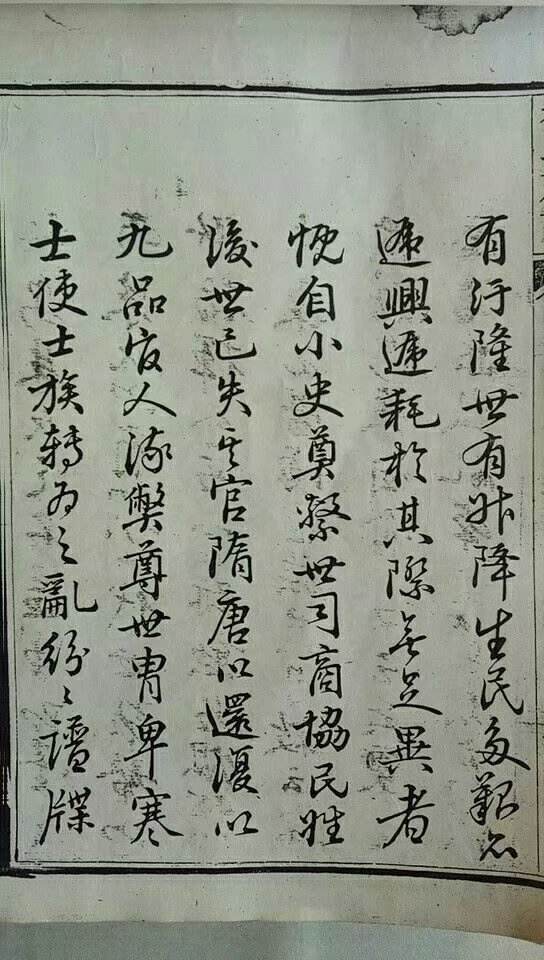 有汙隆世有升降生民多艱亦
遞興遞耗於其際無足異者
慨自小史奠繫世司商協民姓
後世已失其官隋唐以還復以
九品官人流弊尊世胄卑寒
士使士族轉為之亂紛紛譜牒